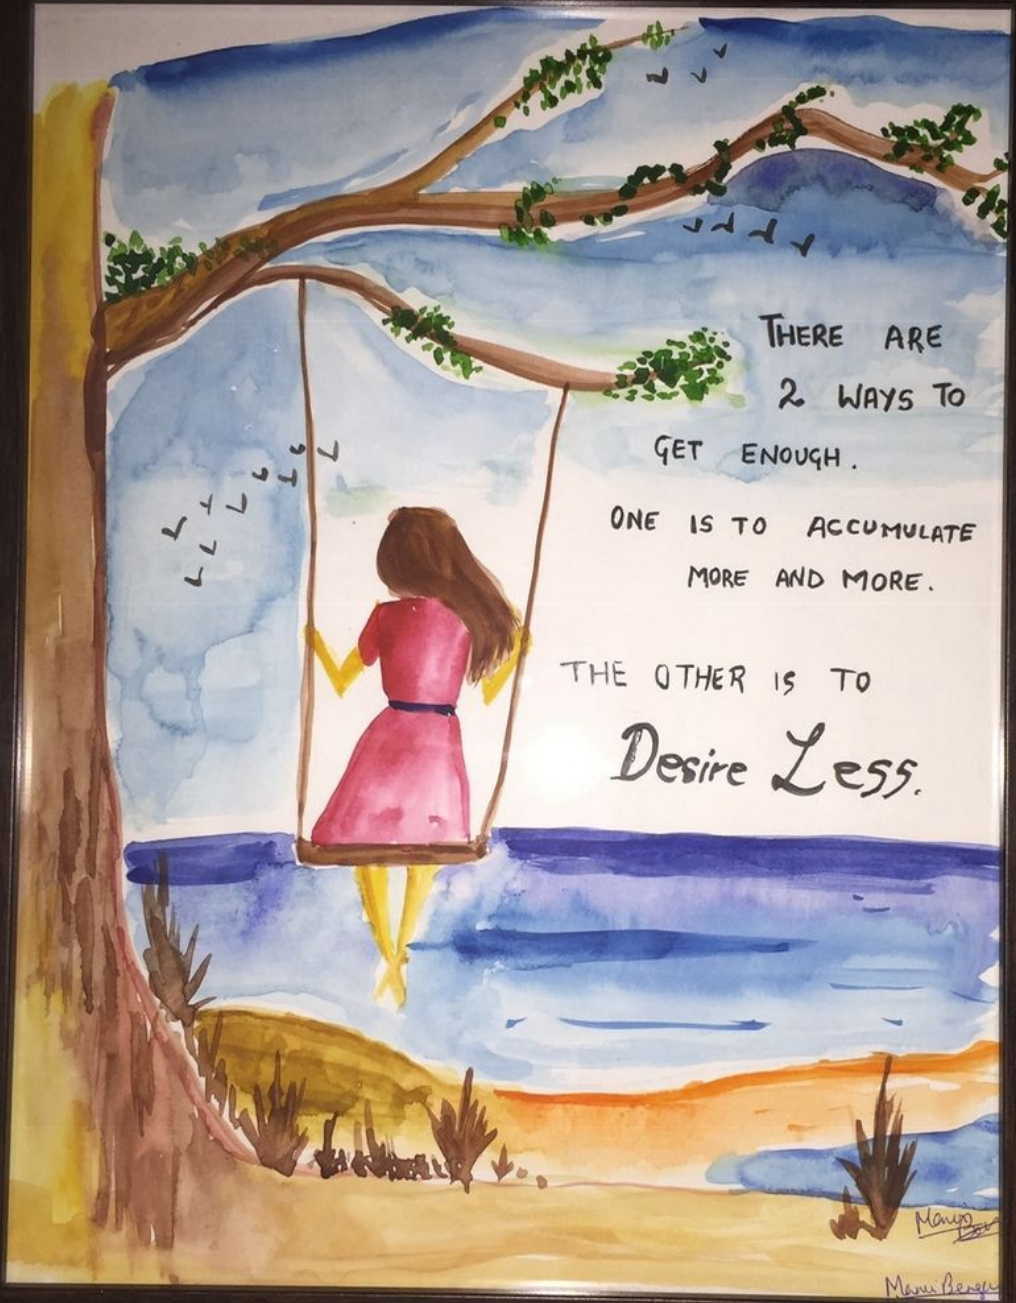 THERE ARE
2 WAYS TO
GET ENOUGH.
ONE IS TO ACCUMULATE
MORE AND MORE.
THE OTHER IS TO
Desire Less.